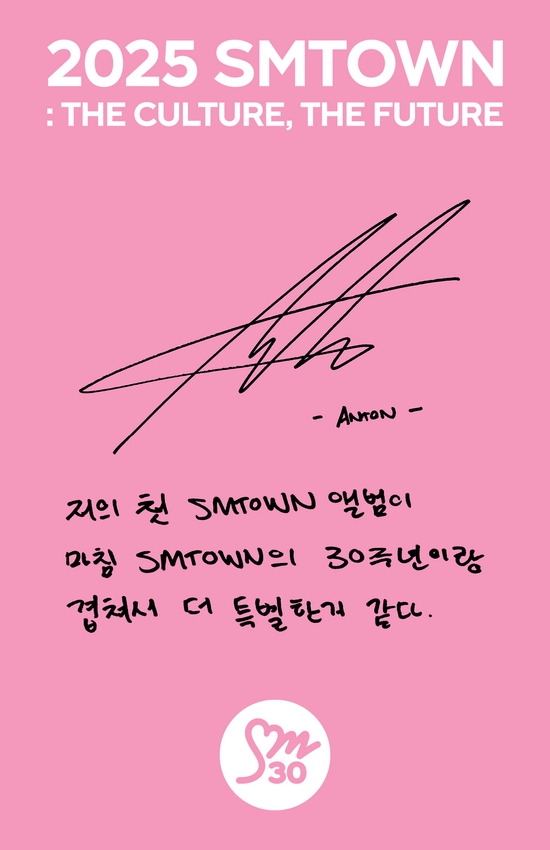 2025 SMTOWN
: THE CULTURE, THE FUTURE
- ANTON -
저의 첫 SMTOWN 앨범이
마침 SMTOWN의 30주년이랑
겹쳐서 더 특별한거 같다.
Sm
30